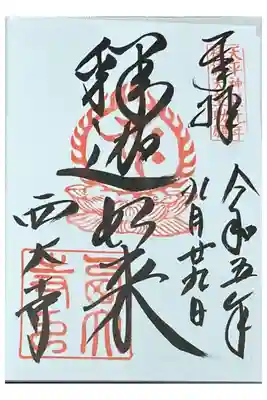 奉拝
令和五年
九月廿九日
釋迦如来
西大寺